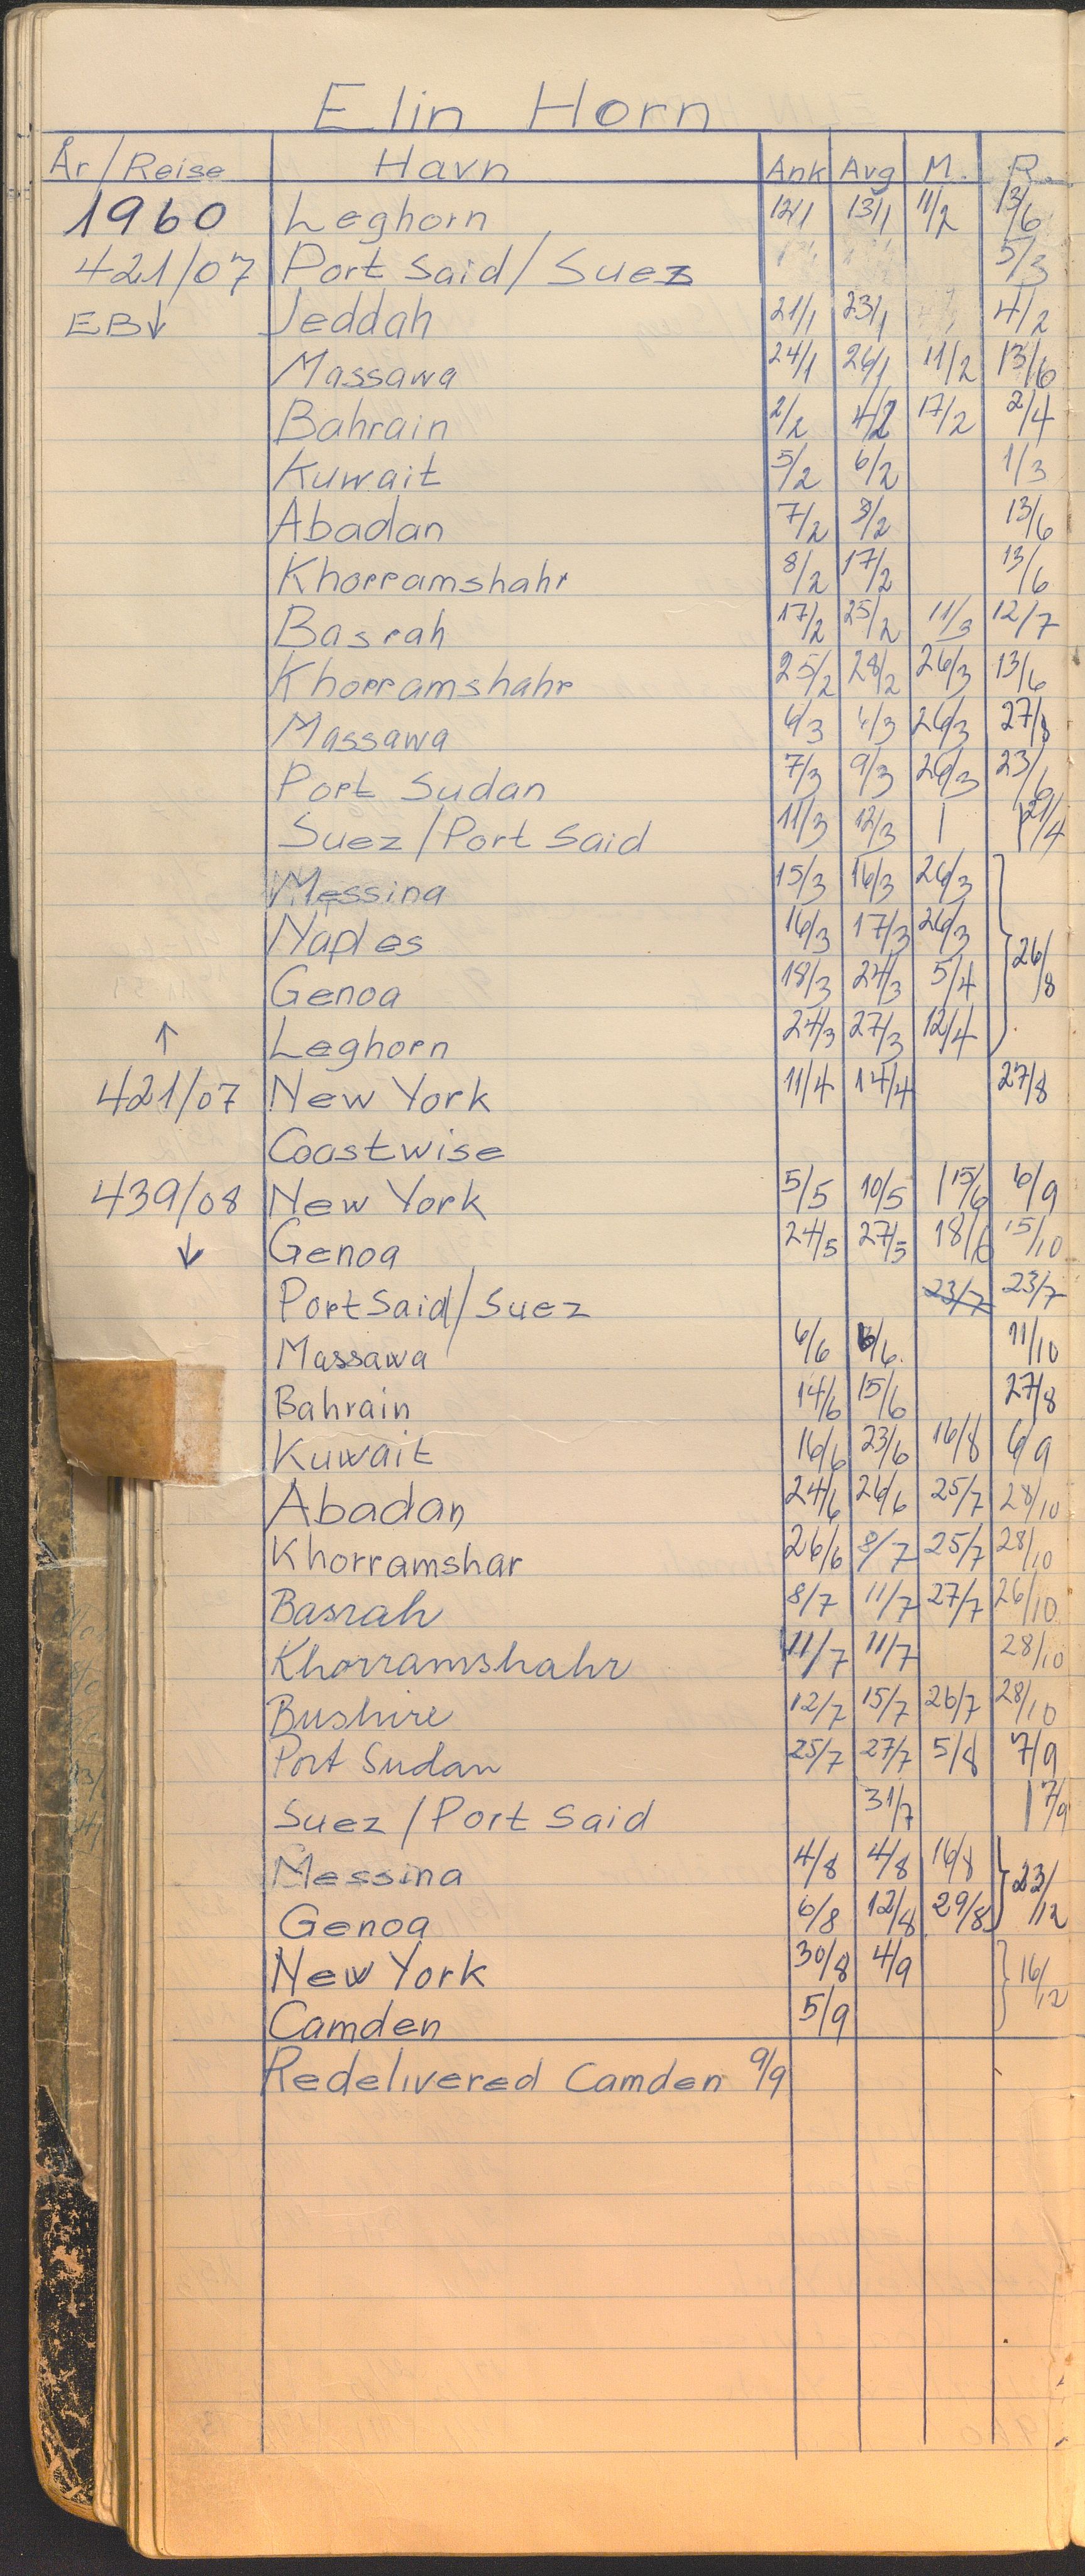 Elin Horn
År/Reise Havn Ank Avg M. R.
1960 Leghorn 12/1 13/1 11/2 13/6
421/07 Port Said/Suez 5/3
EB↓ Jeddah 21/1 23/1 4/2
Massawa 24/1 26/1 11/2 13/6
Bahrain 2/2 4/2 17/2 2/4
Kuwait 5/2 6/2 1/3
Abadan 7/2 8/2 13/6
Khorramshahr 8/2 17/2 13/6
Basrah 17/2 25/2 11/3 12/7
Khorramshahr 25/2 28/2 26/3 13/6
Massawa 6/3 6/3 26/3 27/8
Port Sudan 7/3 9/3 26/3 23/6
Suez/Port Said 11/3 12/3 | 21/4
Messina 15/3 16/3 26/3
Naples 16/3 17/3 26/3
Genoa 18/3 24/3 5/4 26/8
↑ Leghorn 24/3 27/3 12/4
421/07 New York 11/4 14/4 27/8
Coastwise
439/08 New York 5/5 10/5 15/6 6/9
↓ Genoa 24/5 27/5 18/6 15/10
Port Said/Suez 23/7 23/7
Massawa 6/6 6/6. 11/10
Bahrain 14/6 15/6 27/8
Kuwait 16/6 23/6 16/8 6/9
Abadan 24/6 26/6 25/7 28/10
Khorramshar 26/6 8/7 25/7 28/10
Basrah 8/7 11/7 27/7 26/10
Khorramshahr 11/7 11/7 28/10
Bushire 12/7 15/7 26/7 28/10
Port Sudan 25/7 27/7 5/8 7/9
Suez/Port Said 31/7 7/9
Messina 4/8 4/8 16/8 23/12
Genoa 6/8 12/8 29/8
New York 30/8 4/9 16/12
Camden 5/9
Redelivered Camden 9/9